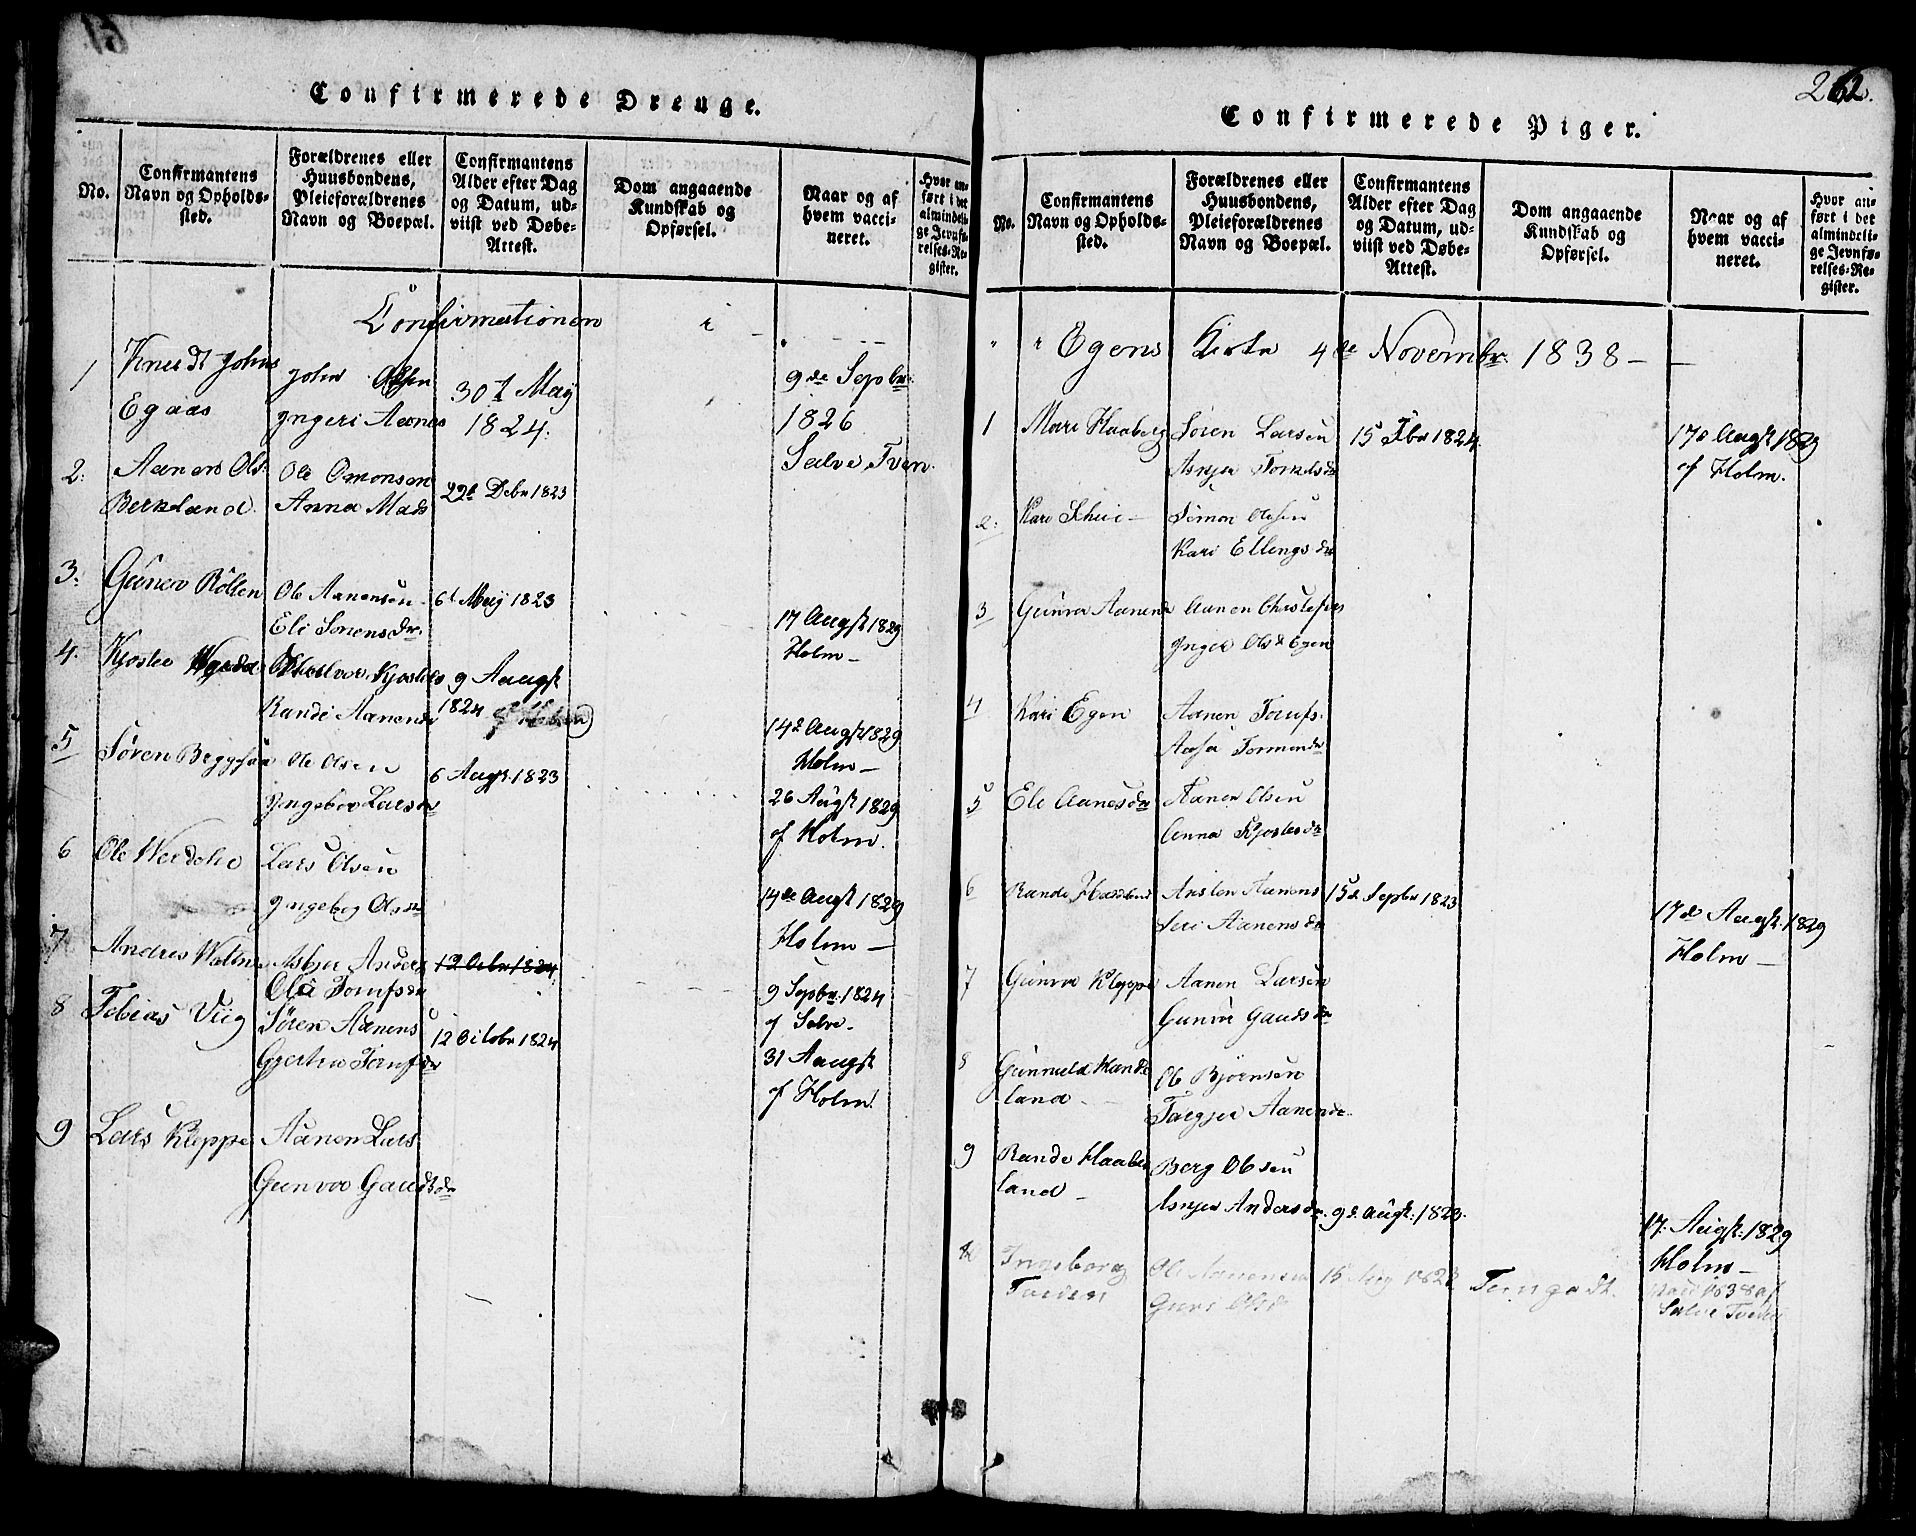 Confirmerede Drenge.
No.
Confirmantens
Navn og Opholds-
sted.
Forældrenes eller
Huusbondens,
Pleieforældrenes
Navn og Boepæl.
Confirmantens
Alder efter Dag
og Datum, ud-
viist ved Døbe-
Attest.
Dom angaaende
Kundskab og
Opførsel.
Naar og af
hvem vacci-
neret.
Hvor an-
ført i det
almindeli-
ge Jevnfø-
relses-Re-
gister.
Confirmationen i
1 Knudt Johns
Egaas
John Olsen
Ingeri Aanes
30t May
1824.
9de Sepbr.
1826
Salve Tven.
2. Aanen Ols.
Berkeland.
Ole Omonsen
Anna Mads
22d Debr 1823
3. Guner Röllen
Ole Aanensen
Eli Sørensdr.
6t May 1823
17 Augst 1829
Holm
4. Kjosten
Kjostels
Rande Aanensdr
9 Aaugst
1824
14d Augst 1829
Holm
5 Søren
Ole Olsen
Ingebor Larsdr
6 Augst. 1823
26 Augst 1829
af Holm.
6 Ole
Lars Olsen
Ingebog Olsdr
14de Augst 1829
Holm
7 Andres
Asbjør Anders
Ole
12 Octbr 1824
9 Sepbr. 1824
af Salve
8 Tobias Viig
Søren Aanens
12 Octobr 1824
31 Aaugst
af Holm.
9 Lars Kleppe
Aanen Lars
Gunvor Gaudsdr
262.
Confirmerede Piger.
No.
Confirmantens
Navn og Opholds-
sted.
Forældrenes eller
Huusbondens,
Pleieforældrenes
Navn og Boepæl.
Confirmantens
Alder efter Dag
og Datum, ud-
viist ved Døbe-
Attest.
Dom angaaende
Kundskab og
Opførsel.
Naar og af
hvem vacci-
neret.
Hvor an-
ført i det
almindeli-
ge Jevnfø-
relses-Re-
gister.
Egens Kirke 4de Novembr. 1838
1 Mari Haaberg
Søren Larsen
15 Fbr 1824
17d Augst 1829
af Holm.
2. Kari
Simon Olsen
Kari Ellingsdr
3 Gunvor Aanensdr
Aanen Christofers
Inger Olsd Egen
4 Kari Egen
Aanen
5 Eli Aanesdr
Aanen Olsen
Anna Kjostesdr
6 Rande
Ansten Aanens
Seri Aanensdr
15d Sepbr 1823
17d Augst. 1829
Holm
7 Gunvor Kleppe
Aanen Larsen
Gunvor Gaudsdr
8 Gunnuld
land
Ole Bjørnsen
Targjer Aanensdr.
9 Rande Haabe
land
Berg Olsen
Asnjer Andersdr.
9d. Augst. 1823.
17. Augst. 1829
Holm
Ingeborg
Tveden
Ole Aanensen
Guri Olsdr
15 May 1823
1838 af
Salve